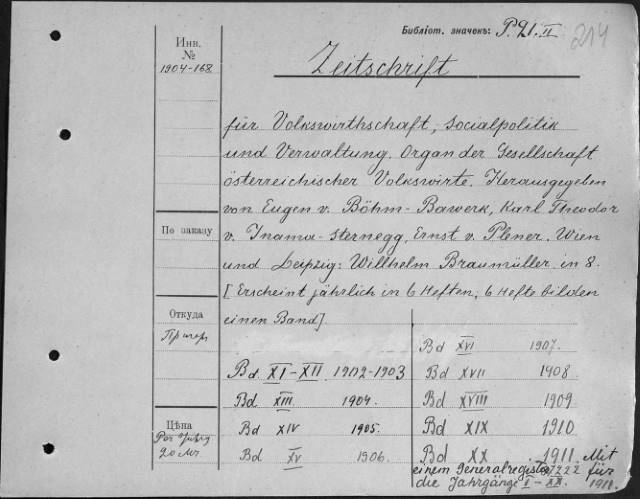 Библіот. значекъ: P. 21. II 214
Инв.
№
1904-168
Zeitschrift
für Volkswirthschaft, Socialpolitik
und Verwaltung. Organ der Gesellschaft
österreichischer Volkswirte. Herausgegeben
von Eugen v. Böhm-Bawerk, Karl Theodor
По заказу
v. Inama-Sternegg, Ernst v. Plener. Wien
und Leipzig: Willhelm Braumüller. in 8.
[Erscheint jährlich in 6 Heften, 6 Hefte bilden
einen Band].
Откуда
Bd XI-XII 1902-1903
Bd XIII 1904.
Bd XIV 1905.
Bd XV 1906.
Bd XVI 1907.
Bd XVII 1908
Bd XVIII 1909
Bd XIX 1910
Bd XX 1911. Mit
einem Generalregister für
die Jahrgänge I-XX. 1911.
Цѣна
20 Mr.